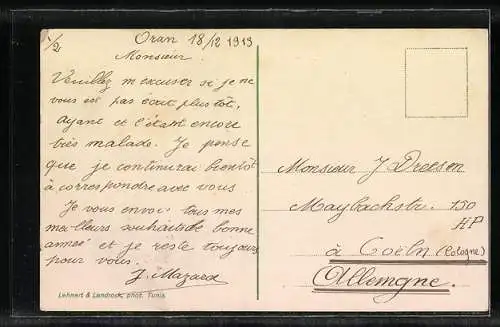 1/2
Oran 18/12 1913
Monsieur
Veuillez m excuser si je ne
vous est pas écrit plus tôt,
ayant et l'étant encore
très malade. Je pense
que je continuerai bientôt
à correspondre avec vous
Je vous envoi tous mes
meilleurs souhaits de bonne
année et je reste toujours
pour vous.
J. Mazard
Lehnert & Landrock, phot. Tunis
Monsieur J Dreesen
Maybachstr. 150
HP
à Coëln (Cologne)
Allemgne.